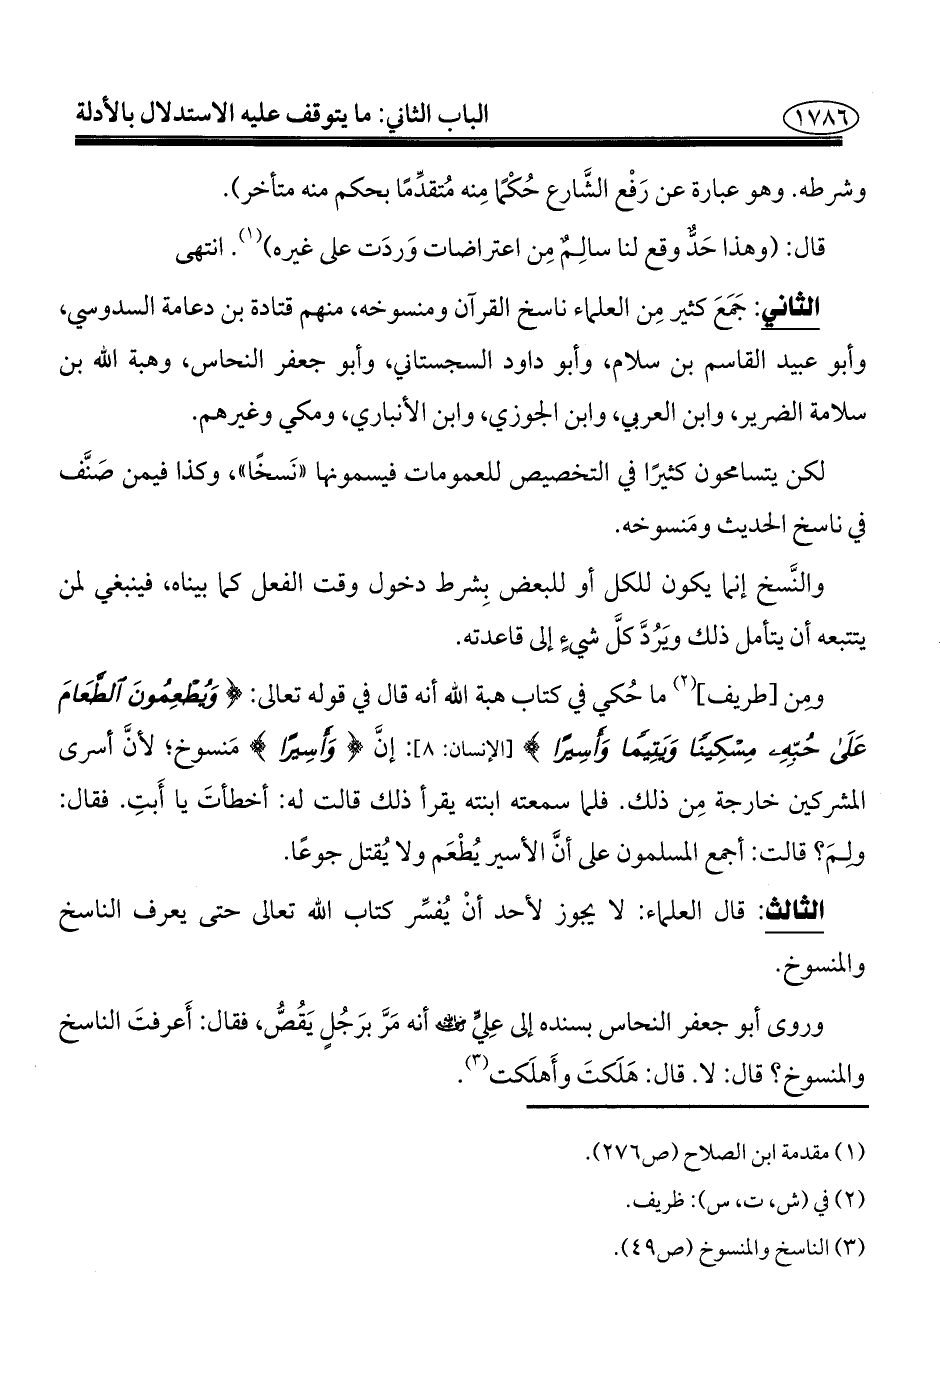 ١٧٨٦ الباب الثاني: ما يتوقف عليه الاستدلال بالأدلة
وشرطه. وهو عبارة عن رَفْع الشَّارع حُكْمًا مِنه مُتقدِّمًا بحكم منه متأخر).
قال: (وهذا حَدٌّ وقع لنا سالِـمٌ مِن اعتراضات وَردَت على غيره)(١). انتهى
الثاني: جَمَعَ كثير مِن العلماء ناسخ القرآن ومنسوخه، منهم قتادة بن دعامة السدوسي،
وأبو عبيد القاسم بن سلام، وأبو داود السجستاني، وأبو جعفر النحاس، وهبة الله بن
سلامة الضرير، وابن العربي، وابن الجوزي، وابن الأنباري، ومكي وغيرهم.
لكن يتسامحون كثيرًا في التخصيص للعمومات فيسمونها «نَسخًا»، وكذا فيمن صَنَّف
في ناسخ الحديث ومَنسوخه.
والنَّسخ إنما يكون للكل أو للبعض بِشرط دخول وقت الفعل كما بيناه، فينبغي لمن
يتتبعه أن يتأمل ذلك ويَرُدَّ كلَّ شيءٍ إلى قاعدته.
ومِن [طريف](٢) ما حُكي في كتاب هبة الله أنه قال في قوله تعالى: ﴿وَيُطْعِمُونَ ٱلطَّعَامَ
عَلَىٰ حُبِّهِۦ مِسْكِينًا وَيَتِيمًا وَأَسِيرًا﴾ [الإنسان: ٨]: إنَّ ﴿وَأَسِيرًا﴾ مَنسوخ؛ لأنَّ أسرى
المشركين خارجة مِن ذلك. فلما سمعته ابنته يقرأ ذلك قالت له: أخطأتَ يا أَبتِ. فقال:
ولِـمَ؟ قالت: أجمع المسلمون على أنَّ الأسير يُطْعَم ولا يُقتل جوعًا.
الثالث: قال العلماء: لا يجوز لأحد أنْ يُفسِّر كتاب الله تعالى حتى يعرف الناسخ
والمنسوخ.
وروى أبو جعفر النحاس بسنده إلى عِليٍّ رضي الله عنه أنه مَرَّ بَرَجُلٍ يَقُصُّ، فقال: أَعرفتَ الناسخ
والمنسوخ؟ قال: لا. قال: هَلَكتَ وأَهلَكت(٣).
(١) مقدمة ابن الصلاح (ص٢٧٦).
(٢) في (ش، ت، س): ظريف.
(٣) الناسخ والمنسوخ (ص٤٩).